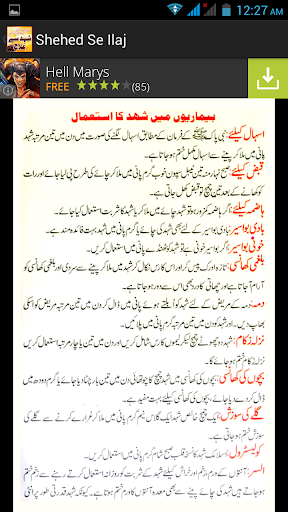 12:27 AM
Shehed Se Ilaj
Hell Marys
FREE (85)
بیماریوں میں شھد کا استعمال
اسہال کیلئے: نبی پاک ﷺ کے فرمان کے مطابق اسہال لگنے کی صورت میں دن میں تین مرتبہ شہد
پانی میں ملا کر پینے سے اسہال مکمل ختم ہو جاتا ہے۔
قبض کیلئے: صبح نہار منہ تین ٹیبل سپون خوب گرم پانی میں ملا کر چائے کی طرح پی لیا جائے اور رات
کو کھانے کے بعد تین چمچ تو پرانی قبض کھل جاتی ہے۔
ہاضمہ کیلئے: اگر ہاضمہ کمزور ہو تو شہد چائے میں ملا کر یا شہد کا شربت استعمال کیا جائے۔
بادی بواسیر: بادی بواسیر کے لئے بھی شہد کی چائے یا گرم پانی میں شہد بہت فائدہ مند ہے۔
خونی بواسیر: اگر بواسیر خونی ہے تو شہد کو ٹھنڈے پانی میں استعمال کریں۔
بلغمی کھانسی: تازہ ادرک پیس کر اور اس کا رس نکال کر شہد میں ملا کر پینے سے سردی اور بلغمی کھانسی کو
آرام آ جاتا ہے اور اس سے سانس کی تکلیف بھی دور ہو جاتی ہے۔
دمہ: دمہ کے مریض کے لئے شہد کو ابلتے ہوئے پانی میں ڈال کر دن میں تین مرتبہ مریض کو اسکی
بھاپ دیں۔ اور شہد کو دن میں تین مرتبہ گرم پانی میں پلائیں۔
نزلہ زکام: شہد دو چمچ ایک لیموں کا رس شامل کریں اور دن میں تین بار گرم پانی میں استعمال کریں نزلہ زکام
ختم ہو جائے گا۔
بچوں کی کھانسی: بچوں کی کھانسی کیلئے شہد ایک چمچ دن میں تین بار چٹا دیا جائے یا گرم دودھ میں
دیا جائے بہت مفید ہے۔
گلے کی سوزش: ایک چمچ خالص شہد ایک گلاس نیم گرم پانی میں ملا کر غرارے کرنے سے گلے کی
سوزش ختم ہو جاتی ہے۔
کولیسٹرول: اسلامک شہد کا قہوہ صبح شام گرم پانی میں استعمال کریں۔
السر: آنتوں کا ورم، زخم اور خراش کیلئے شہد کے شربت کو روزانہ استعمال کرتے رہنے سے زخم ختم
ہو جاتے ہیں۔ اس سے معدہ آنتوں کا ورم ختم ہو جاتا ہے۔ کیونکہ شہد قدرتی طور پر اینٹی